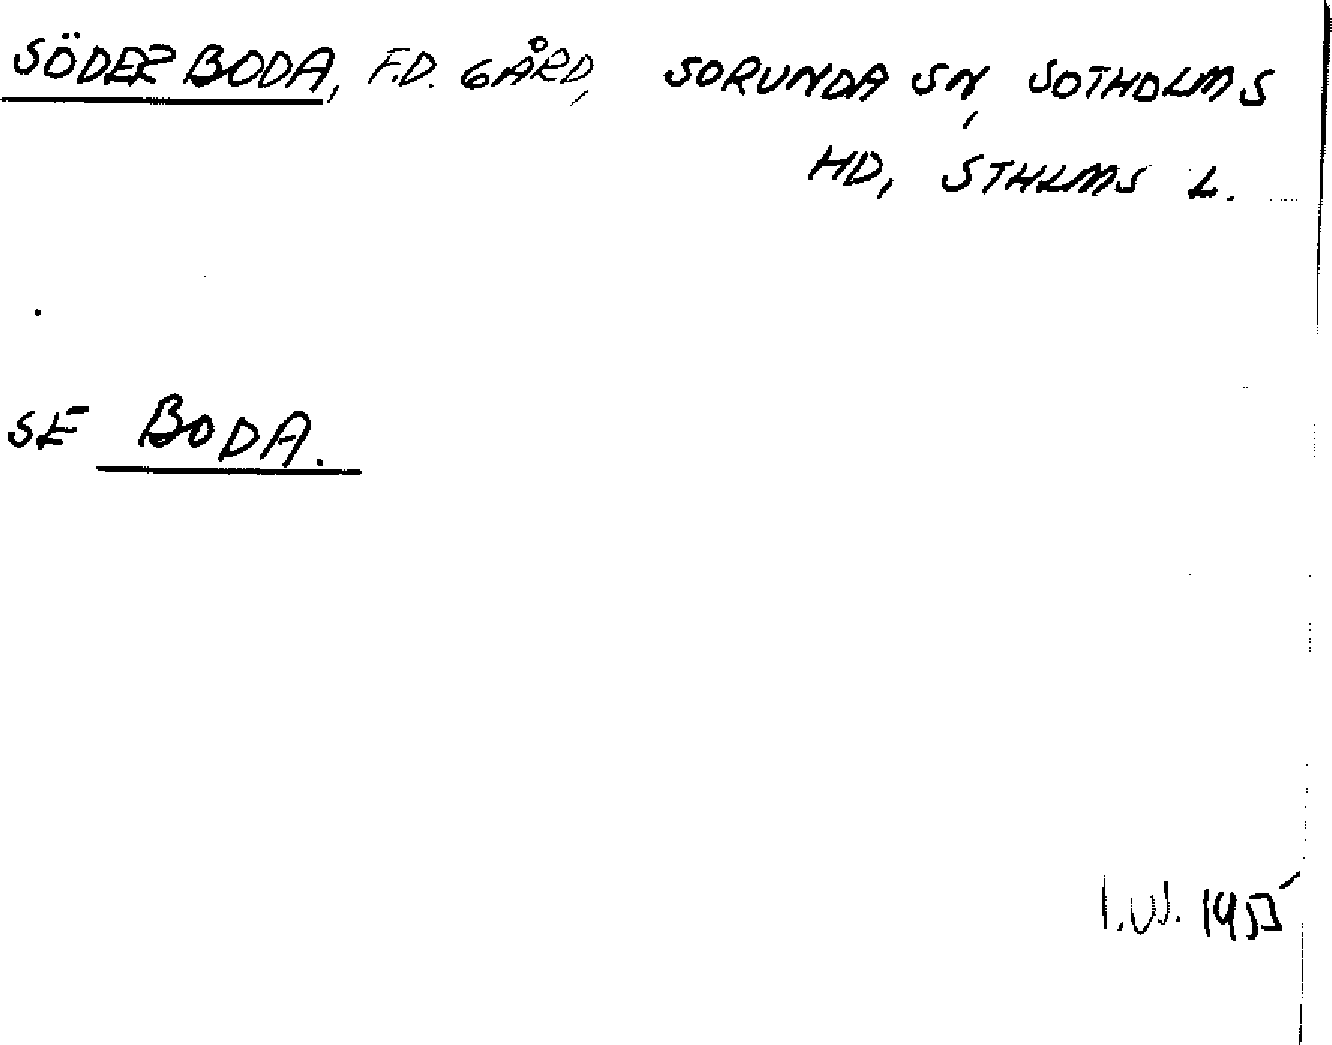 SÖDER BODA, F.D. GÅRD, SORUNDA SN, SOTHOLMS
HD, STHLMS L.
SE BODA.
I.W. 1955